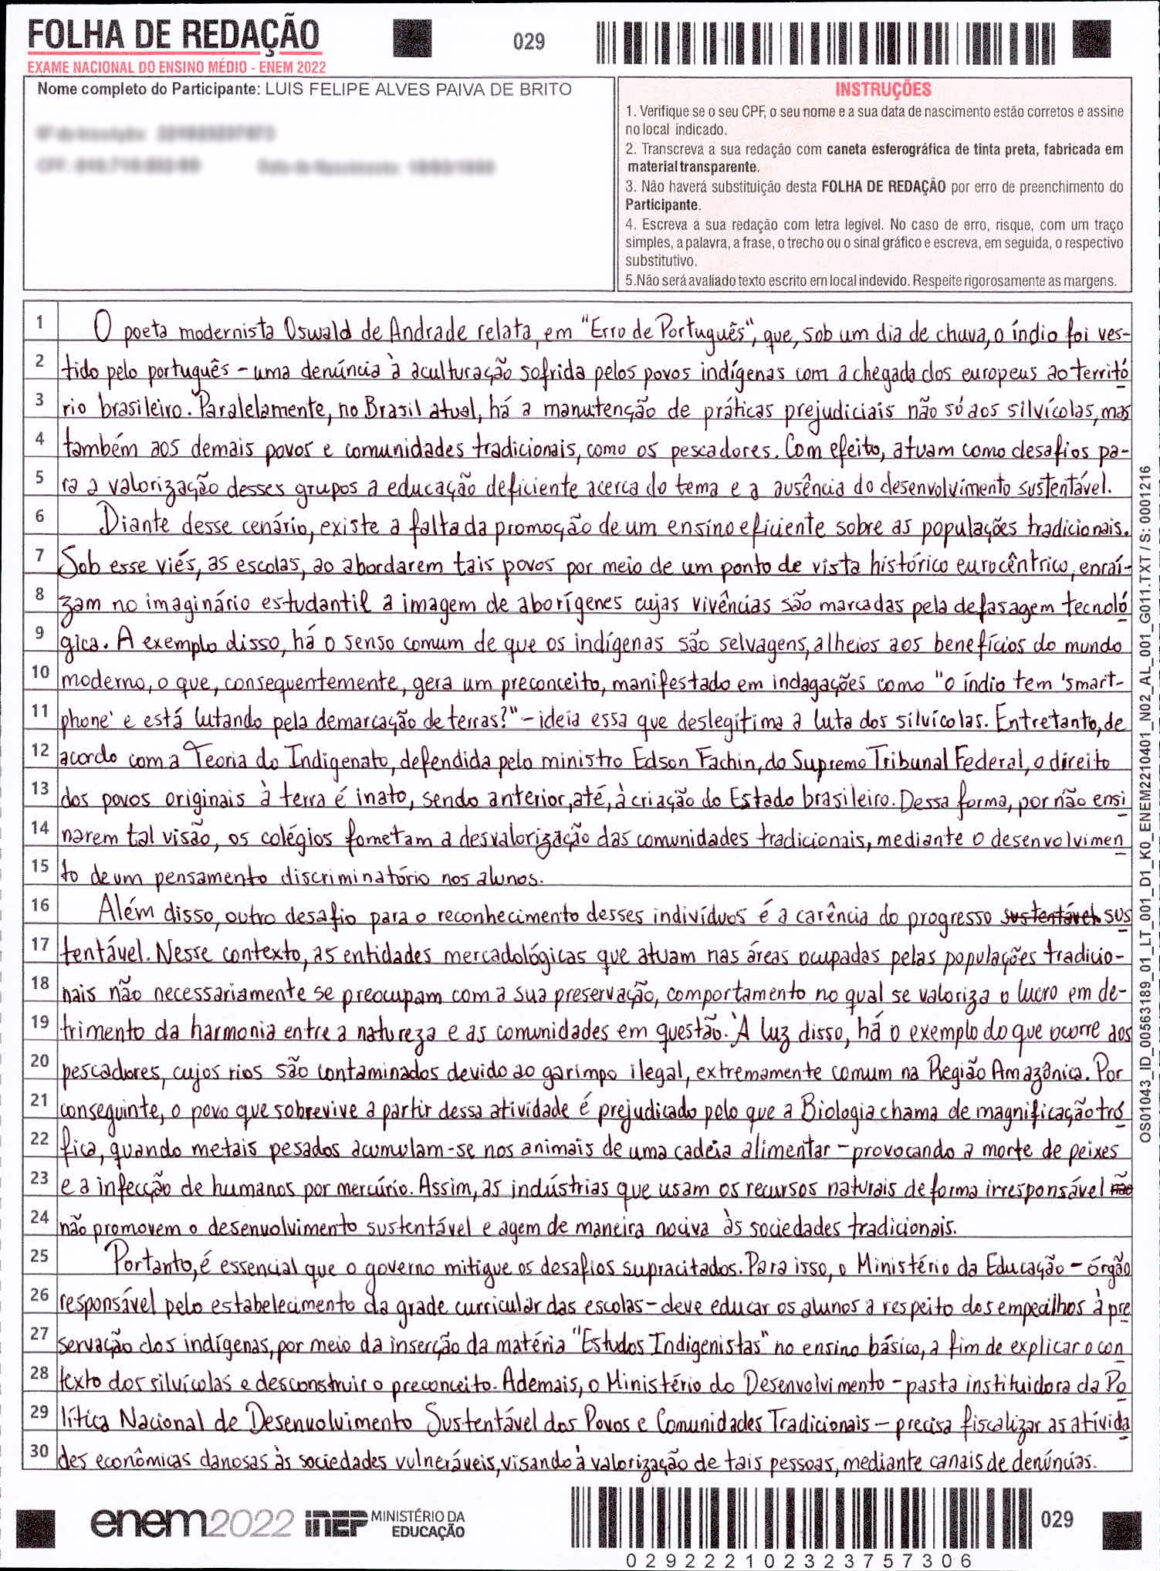 FOLHA DE REDAÇÃO
029
EXAME NACIONAL DO ENSINO MÉDIO - ENEM 2022
Nome completo do Participante: LUIS FELIPE ALVES PAIVA DE BRITO
INSTRUÇÕES
1. Verifique se o seu CPF, o seu nome e a sua data de nascimento estão corretos e assine
no local indicado.
2. Transcreva a sua redação com caneta esferográfica de tinta preta, fabricada em
material transparente.
3. Não haverá substituição desta FOLHA DE REDAÇÃO por erro de preenchimento do
Participante.
4. Escreva a sua redação com letra legível. No caso de erro, risque, com um traço
simples, a palavra, a frase, o trecho ou o sinal gráfico e escreva, em seguida, o respectivo
substitutivo.
5.Não será avaliado texto escrito em local indevido. Respeite rigorosamente as margens.
1 O poeta modernista Oswald de Andrade relata, em "Erro de Português", que, sob um dia de chuva, o índio foi ves-
2 tido pelo português - uma denúncia à aculturação sofrida pelos povos indígenas com a chegada dos europeus ao territó
3 rio brasileiro. Paralelamente, no Brasil atual, há a manutenção de práticas prejudiciais não só aos silvícolas, mas
4 também aos demais povos e comunidades tradicionais, como os pescadores. Com efeito, atuam como desafios pa-
5 ra a valorização desses grupos a educação deficiente acerca do tema e a ausência do desenvolvimento sustentável.
6 Diante desse cenário, existe a falta da promoção de um ensino eficiente sobre as populações tradicionais.
7 Sob esse viés, as escolas, ao abordarem tais povos por meio de um ponto de vista histórico eurocêntrico, enraí-
8 zam no imaginário estudantil a imagem de aborígenes cujas vivências são marcadas pela defasagem tecnoló
9 gica. A exemplo disso, há o senso comum de que os indígenas são selvagens, alheios aos benefícios do mundo
10 moderno, o que, consequentemente, gera um preconceito, manifestado em indagações como "o índio tem 'smart-
11 phone' e está lutando pela demarcação de terras?" - ideia essa que deslegitima a luta dos silvícolas. Entretanto, de
12 acordo com a Teoria do Indigenato, defendida pelo ministro Edson Fachin, do Supremo Tribunal Federal, o direito
13 dos povos originais à terra é inato, sendo anterior, até, à criação do Estado brasileiro. Dessa forma, por não ensi
14 narem tal visão, os colégios fometam a desvalorização das comunidades tradicionais, mediante o desenvolvimen
15 to de um pensamento discriminatório nos alunos.
16 Além disso, outro desafio para o reconhecimento desses indivíduos é a carência do progresso sustentável sus
17 tentável. Nesse contexto, as entidades mercadológicas que atuam nas áreas ocupadas pelas populações tradicio-
18 nais não necessariamente se preocupam com a sua preservação, comportamento no qual se valoriza o lucro em de-
19 trimento da harmonia entre a natureza e as comunidades em questão. À luz disso, há o exemplo do que ocorre aos
20 pescadores, cujos rios são contaminados devido ao garimpo ilegal, extremamente comum na Região Amazônica. Por
21 conseguinte, o povo que sobrevive a partir dessa atividade é prejudicado pelo que a Biologia chama de magnificação tró
22 fica, quando metais pesados acumulam-se nos animais de uma cadeia alimentar - provocando a morte de peixes
23 e a infecção de humanos por mercúrio. Assim, as indústrias que usam os recursos naturais de forma irresponsável não
24 não promovem o desenvolvimento sustentável e agem de maneira nociva às sociedades tradicionais.
25 Portanto, é essencial que o governo mitigue os desafios supracitados. Para isso, o Ministério da Educação - órgão
26 responsável pelo estabelecimento da grade curricular das escolas - deve educar os alunos a respeito dos empecilhos à pre
27 servação dos indígenas, por meio da inserção da matéria "Estudos Indigenistas" no ensino básico, a fim de explicar o con
28 texto dos silvícolas e desconstruir o preconceito. Ademais, o Ministério do Desenvolvimento - pasta instituidora da Po
29 lítica Nacional de Desenvolvimento Sustentável dos Povos e Comunidades Tradicionais - precisa fiscalizar as ativida
30 des econômicas danosas às sociedades vulneráveis, visando à valorização de tais pessoas, mediante canais de denúncias.
OS01043_ID_00563189_01_LT_001_D1_K0_ENEM2210401_N02_AL_001_G011.TXT / S: 0001216
enem2022 INEP MINISTÉRIO DA
EDUCAÇÃO
029
029222102323757306